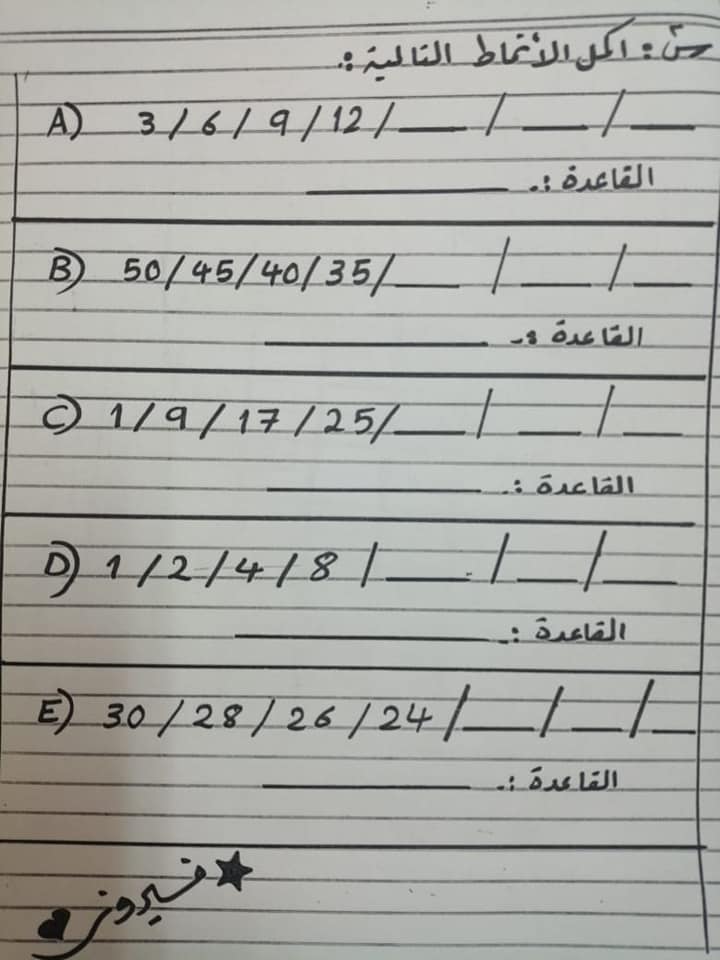 س: اكمل الأنماط التالية :.
A) 3 / 6 / 9 / 12 / ___ / ___ / ___
القاعدة :. ___
B) 50 / 45 / 40 / 35 / ___ / ___ / ___
القاعدة :. ___
C) 1 / 9 / 17 / 25 / ___ / ___ / ___
القاعدة :. ___
D) 1 / 2 / 4 / 8 / ___ / ___ / ___
القاعدة :. ___
E) 30 / 28 / 26 / 24 / ___ / ___ / ___
القاعدة :. ___
فيروز